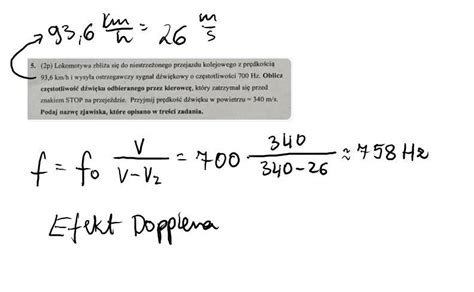 93,6 km/h = 26 m/s
5. (2p) Lokomotywa zbliża się do niestrzeżonego przejazdu kolejowego z prędkością
93,6 km/h i wysyła ostrzegawczy sygnał dźwiękowy o częstotliwości 700 Hz. Oblicz
częstotliwość dźwięku odbieranego przez kierowcę, który zatrzymał się przed
znakiem STOP na przejeździe. Przyjmij prędkość dźwięku w powietrzu = 340 m/s.
Podaj nazwę zjawiska, które opisano w treści zadania.
f = f₀ V/(V-V₂) = 700 · 340/(340-26) ≈ 758 Hz
Efekt Dopplera